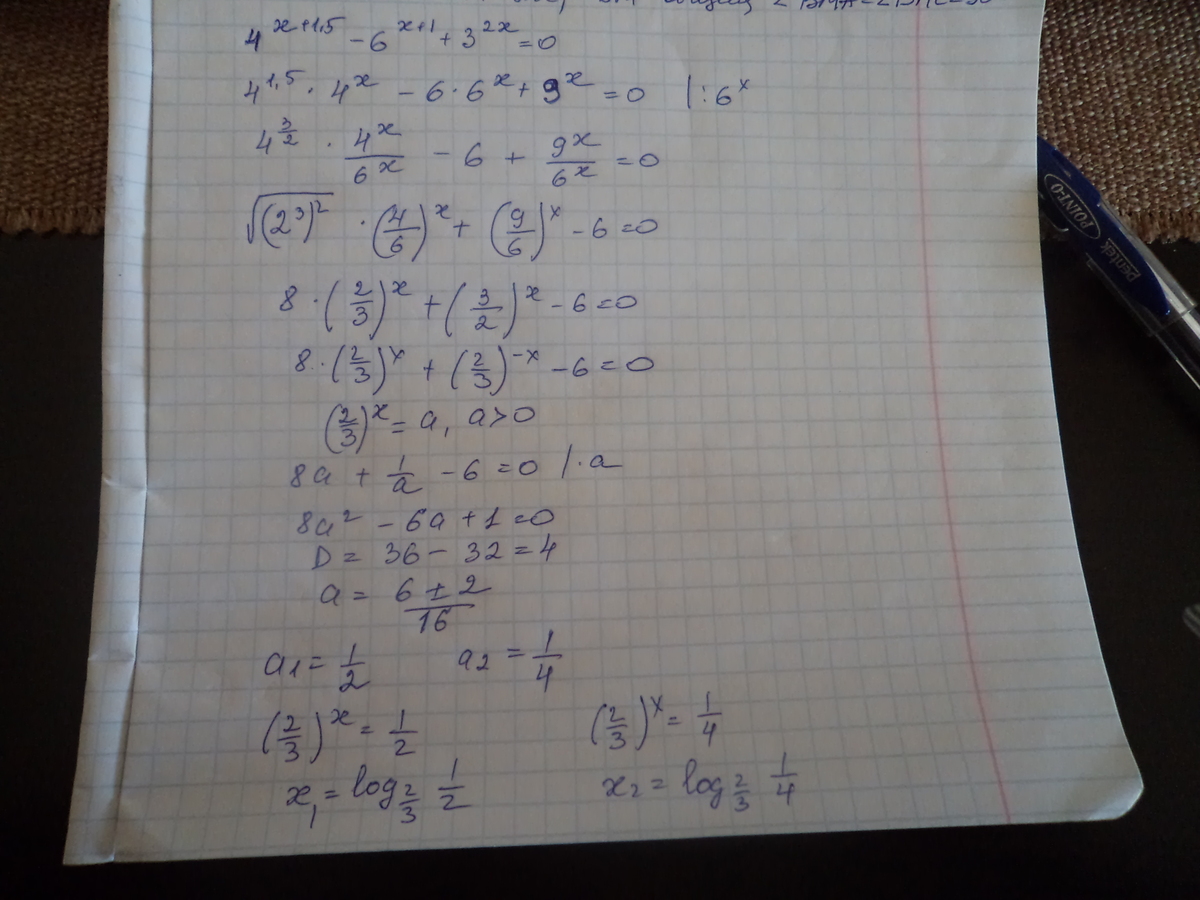 4^{x+1,5} - 6^{x+1} + 3^{2x} = 0
4^{1,5} · 4^x - 6 · 6^x + 9^x = 0 |:6^x
4^{3/2} · 4^x/6^x - 6 + 9^x/6^x = 0
√((2^3)^2) · (4/6)^x + (9/6)^x - 6 = 0
8 · (2/3)^x + (3/2)^x - 6 = 0
8 · (2/3)^x + (2/3)^{-x} - 6 = 0
(2/3)^x = a, a > 0
8a + 1/a - 6 = 0 |·a
8a² - 6a + 1 = 0
D = 36 - 32 = 4
a = (6 ± 2)/16
a₁ = 1/2 a₂ = 1/4
(2/3)^x = 1/2 (2/3)^x = 1/4
x₁ = log_{2/3} 1/2 x₂ = log_{2/3} 1/4
POINT-O
Pentek